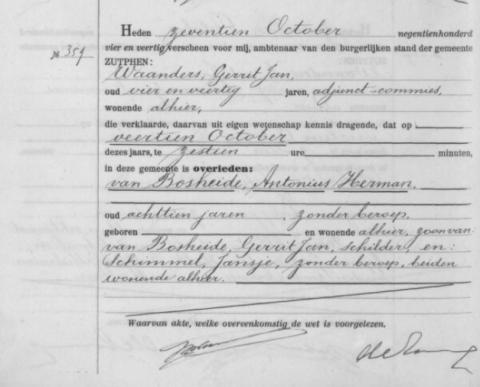 Heden zeventien October negentienhonderd
№ 359 vier en veertig verscheen voor mij, ambtenaar van den burgerlijken stand der gemeente
ZUTPHEN:
Waanders, Gerrit Jan,
oud vier en veertig jaren, adjunct-commies,
wonende alhier,
die verklaarde, daarvan uit eigen wetenschap kennis dragende, dat op
veertien October
dezes jaars, te zestien ure minuten,
in deze gemeente is overleden:
van Bosheide, Antonius Herman.
oud achttien jaren, zonder beroep,
geboren en wonende alhier, zoon van:
van Bosheide, Gerrit Jan, schilder, en:
Schimmel, Jansje, zonder beroep, beiden
wonende alhier.
Waarvan akte, welke overeenkomstig de wet is voorgelezen.